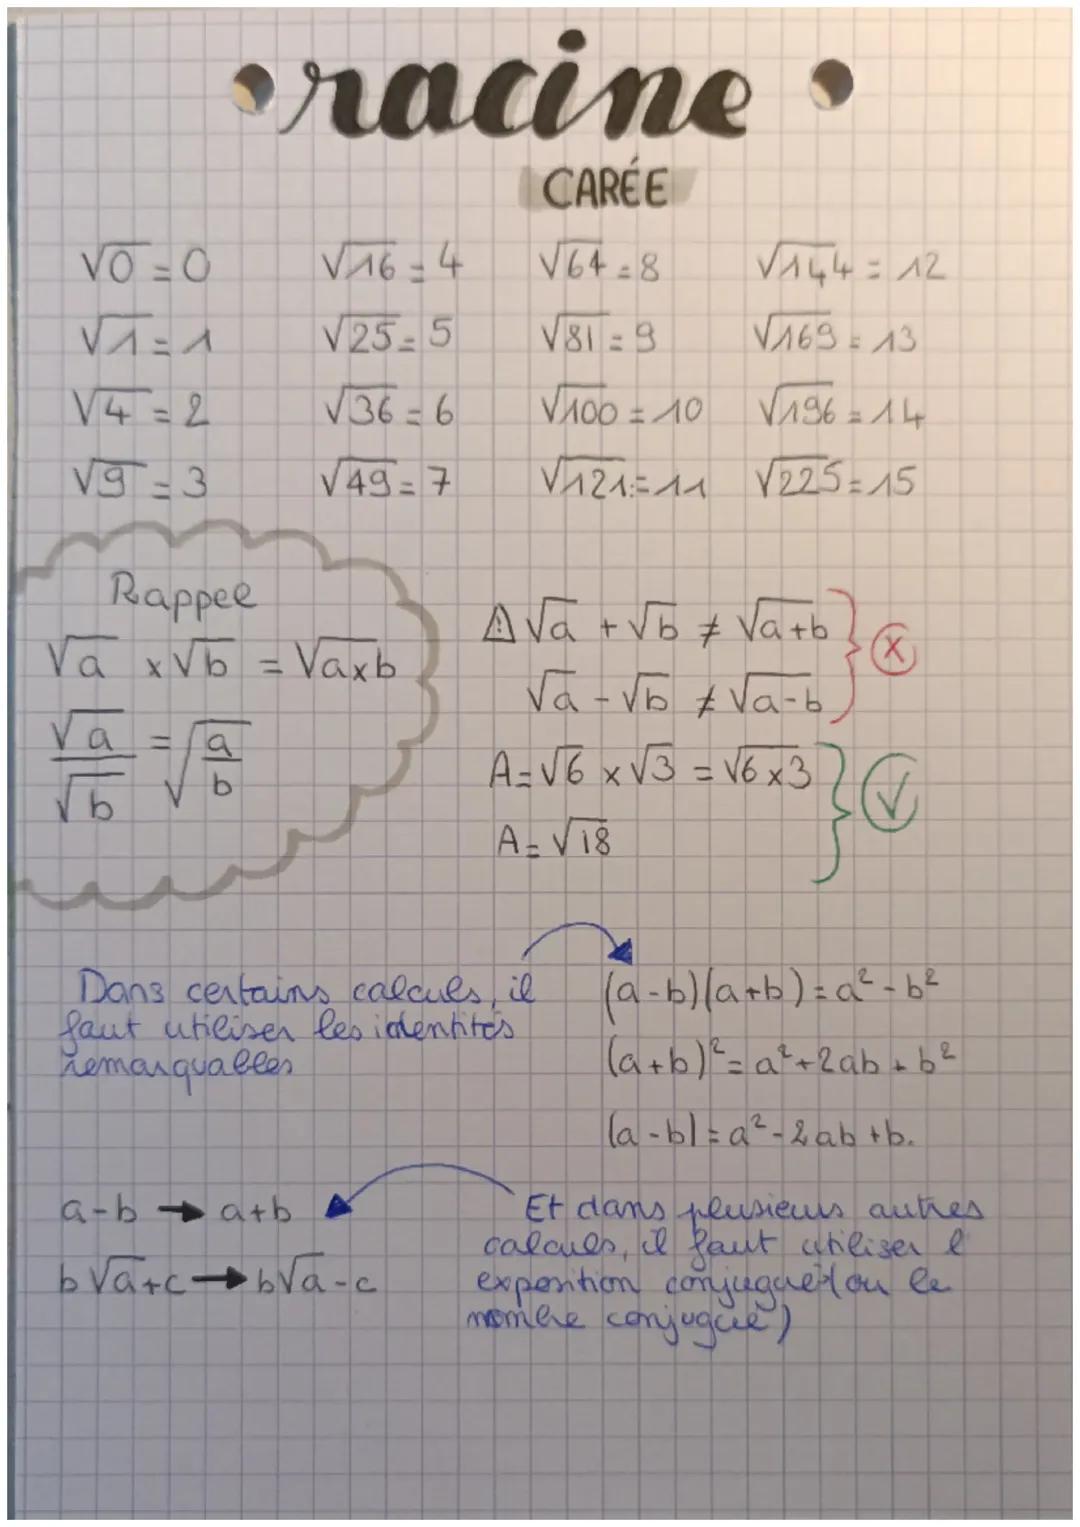 racine
CARÉE
√0 = 0 √16 = 4 √64 = 8 √144 = 12
√1 = 1 √25 = 5 √81 = 9 √169 = 13
√4 = 2 √36 = 6 √100 = 10 √196 = 14
√9 = 3 √49 = 7 √121 = 11 √225 = 15
Rappel
√a × √b = √a×b
√a/√b = √a/b
⚠ √a + √b ≠ √a+b
√a - √b ≠ √a-b
A = √6 × √3 = √6×3
A = √18
Dans certains calculs, il
faut utiliser les identités
remarquables
(a-b)(a+b) = a² - b²
(a+b)² = a² + 2ab + b²
(a-b) = a² - 2ab + b.
a-b → a+b
b√a+c → b√a-c
Et dans plusieurs autres
calculs, il faut utiliser l'
exposition conjugué (ou le
nombre conjugué)